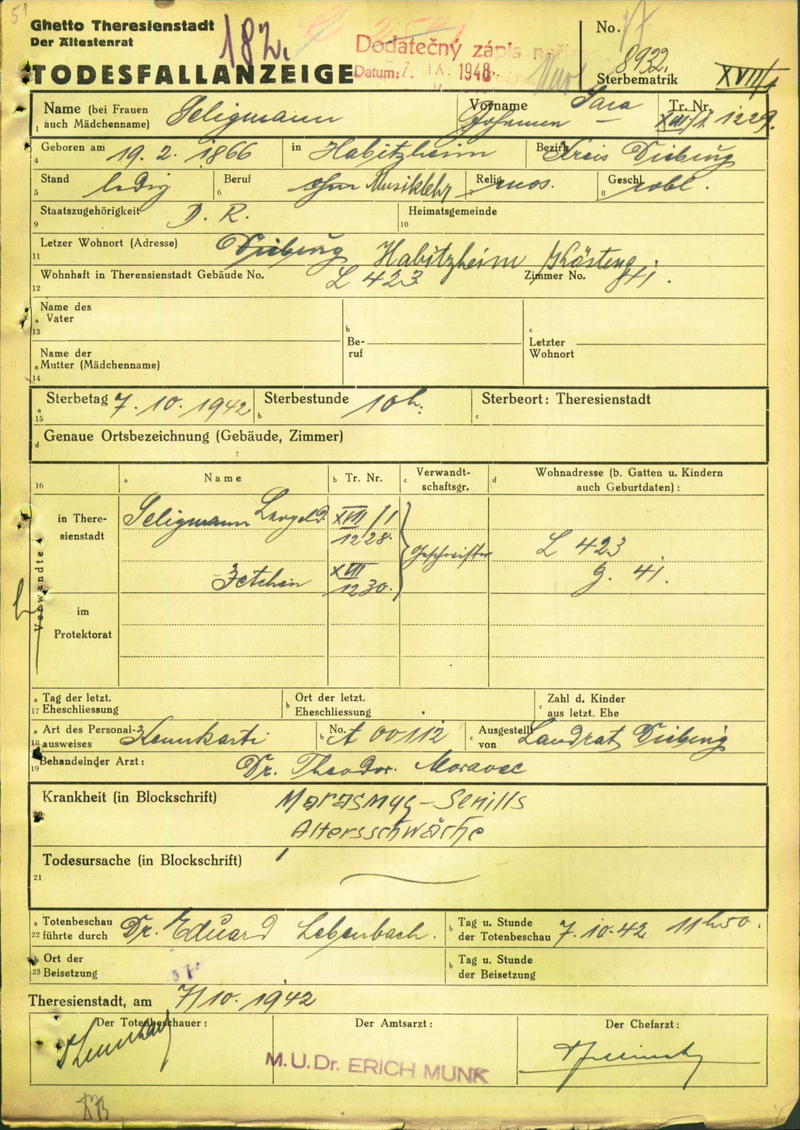 Ghetto Theresienstadt
Der Ältestenrat
182.
Dodatečný zápis
Datum: 7. IX. 1948
No.
8932
Sterbematrik XVII/1
TODESFALLANZEIGE
Name (bei Frauen auch Mädchenname) Seligmann
Vorname Sara Johanna
Tr. Nr. XVII/1 1229.
1
Geboren am 19. 2. 1866 in Habitzheim Bezirk Kreis Dieburg
4
Stand ledig Beruf Musiklehr Relig. mos. Geschl. weibl.
5 6 8
Staatszugehörigkeit D. R. Heimatsgemeinde
9 10
Letzer Wohnort (Adresse) Dieburg Habitzheim
11
Wohnhaft in Therensienstadt Gebäude No. L 423 Zimmer No. 41.
12
Name des Vater
a 13
b Beruf
c Letzter Wohnort
Name der Mutter (Mädchenname)
a 14
a 15 Sterbetag 7. 10. 1942 b Sterbestunde 10 h. c Sterbeort: Theresienstadt
d Genaue Ortsbezeichnung (Gebäude, Zimmer)
16 a Name b Tr. Nr. c Verwandtschaftsgr. d Wohnadresse (b. Gatten u. Kindern auch Geburtdaten):
Verwandte
in Theresienstadt
Seligmann Leopold XVII/1 1228. Geschwister L 423
XVII 1230. 41.
im Protektorat
a 17 Tag der letzt. Eheschliessung b Ort der letzt. Eheschliessung c Zahl d. Kinder aus letzt. Ehe
a 18 Art des Personalausweises Kennkarte b No. A 00112 c Ausgestellt von Landrat Dieburg
19 Behandelnder Arzt: Dr. Theodor Moravec
Krankheit (in Blockschrift) Marasmus-Senilis
Altersschwäche
20
Todesursache (in Blockschrift)
21
a 22 Totenbeschau führte durch Dr. Eduard Lebenbach. b Tag u. Stunde der Totenbeschau 7.10.42 11h50.
23 Ort der Beisetzung b Tag u. Stunde der Beisetzung
Theresienstadt, am 7/10. 1942
Der Totenbeschauer: Der Amtsarzt: Der Chefarzt:
M.U.Dr. ERICH MUNK